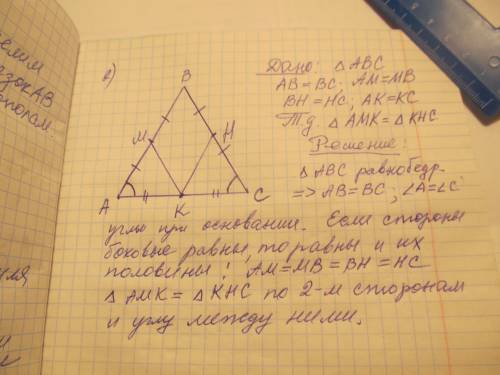 елим
АВ
пополам
2)
В
М
Н
А
К
С
Дано: △ABC
AB=BC. AM=MB
BH=HC; AK=KC
Т.д. △AMK=△KHC
Решение:
△ABC равнобедр.
=> AB=BC; ∠A=∠C
углы при основании. Если стороны
боковые равны, то равны и их
половины: AM=MB=BH=HC
△AMK=△KHC по 2-м сторонам
и углу между ними.